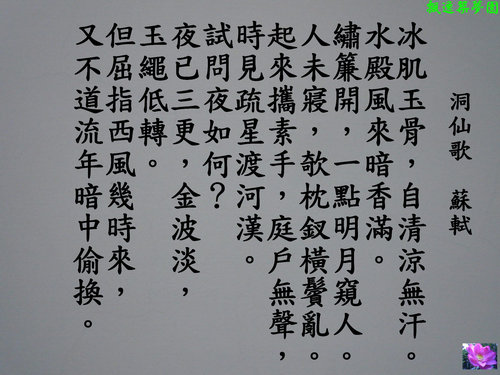 洞仙歌 蘇軾
冰肌玉骨，自清涼無汗。
水殿風來暗香滿。
繡簾開，一點明月窺人。
人未寢，欹枕釵橫鬢亂。
起來攜素手，庭戶無聲，
時見疏星渡河漢。
試問夜如何？
夜已三更，金波淡，
玉繩低轉。
但屈指西風幾時來，
又不道流年暗中偷換。